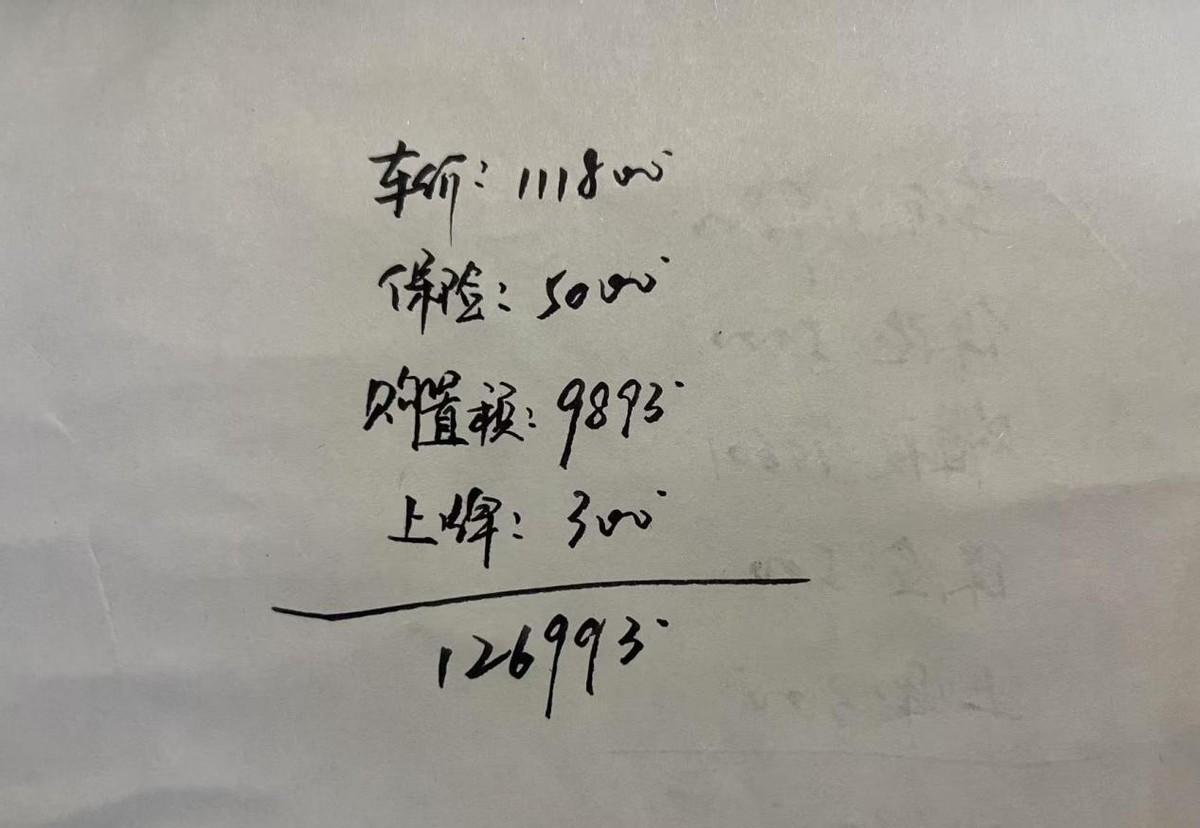 车价：111800
保险：5000
购置税：9893
上牌：300
126993